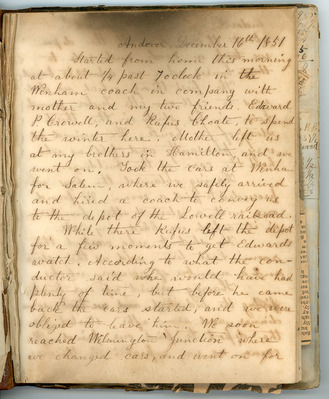 Andover December 16th 1851
Started from home this morning
at about 1/4 past 7 oclock in the
Wenham coach in company with
mother and my two friends, Edward
P Crowell, and Rufus Choate, to spend
the winter here. Mother left us
at my brothers in Hamilton, and we
went on. Took the cars at Wenham
for Salem, where we safely arrived
and hired a coach to convey us
to the depot of the Lowell railroad.
While there Rufus left the depot
for a few moments to get Edwards
watch. According to what the con-
ductor said we would have had
plenty of time but before he came
back the cars started, and we were
obliged to leave him. We soon
reached Wilmington Junction where
we changed cars, and went on for